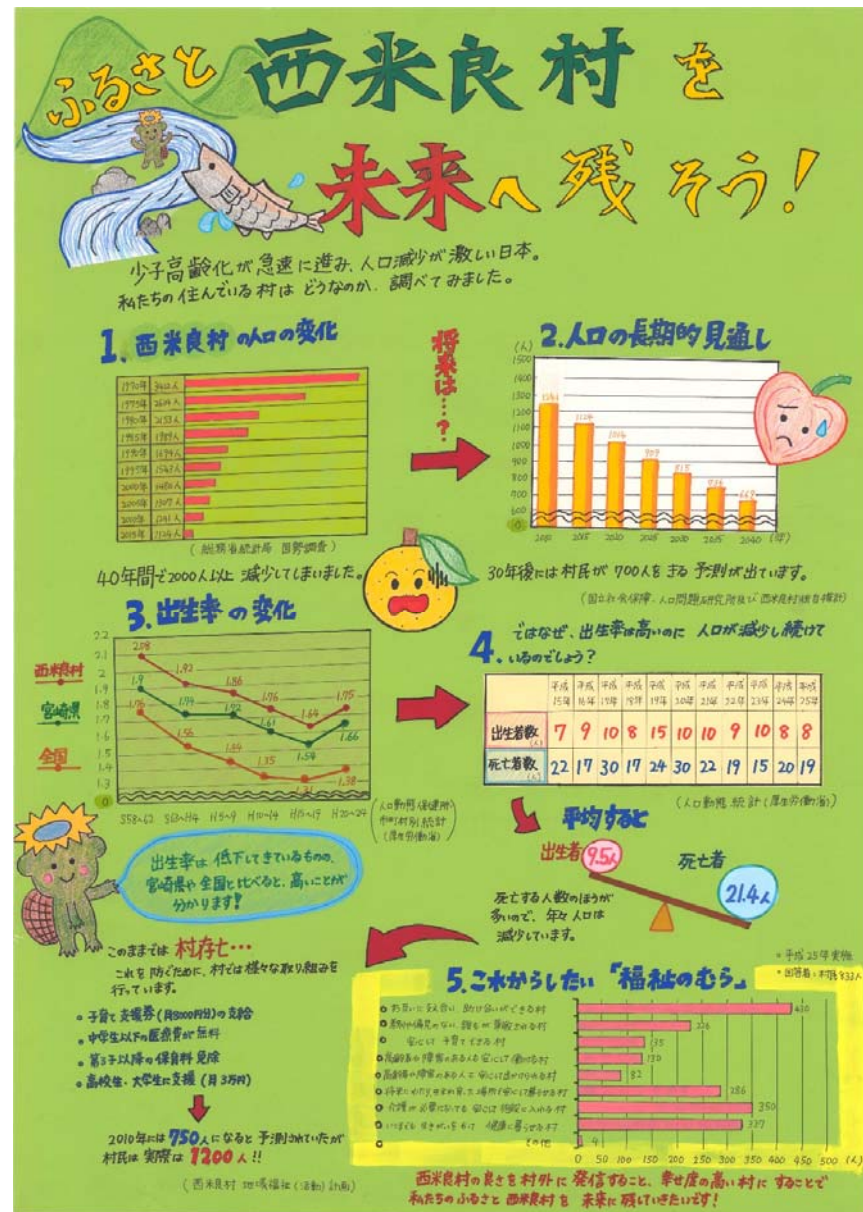 ふるさと 西米良村を
未来へ残そう!
少子高齢化が急速に進み、人口減少が激しい日本。
私たちの住んでいる村はどうなのか、調べてみました。
1.西米良村の人口の変化
1970年 3402人
1975年 2624人
1980年 2153人
1985年 1989人
1990年
1995年 1563人
2000年 1480人
2005年 1307人
2010年 1241人
2015年 1124人
(総務省統計局 国勢調査)
40年間で2000人以上減少してしまいました。
将来は…?
2.人口の長期的見通し
(人)
1500
1400
1300
1200
1100
1000
900
800
700
600
0
1241
1124
1014
909
815
736
669
2010 2015 2020 2025 2030 2035 2040 (年)
30年後には村民が700人をきる予測が出ています。
(国立社会保障・人口問題研究所及び西米良村独自推計)
3.出生率の変化
西米良村
宮崎県
全国
2.2
2.1
2
1.9
1.8
1.7
1.6
1.5
1.4
1.3
0
2.08 1.92 1.86 1.76 1.64 1.75
1.9 1.74 1.72 1.61 1.54 1.66
1.76 1.56 1.44 1.35 1.31 1.38
S58~62 S63~H4 H5~9 H10~14 H15~19 H20~24
(人口動態保健所・
市町村別統計
(厚生労働省))
4.ではなぜ、出生率は高いのに人口が減少し続けて
いるのでしょう?
平成15年 平成16年 平成17年 平成18年 平成19年 平成20年 平成21年 平成22年 平成23年 平成24年 平成25年
出生者数(人) 7 9 10 8 15 10 10 9 10 8 8
死亡者数(人) 22 17 30 17 24 30 22 19 15 20 19
(人口動態統計(厚生労働省))
平均すると
出生者 9.5人
死亡者 21.4人
死亡する人数のほうが
多いので、年々人口は
減少しています。
出生率は低下してきているものの、
宮崎県や全国と比べると、高いことが
分かります!
このままでは村存亡…
これを防ぐために、村では様々な取り組みを
行っています。
・子育て支援券(月3000円分)の支給
・中学生以下の医療費が無料
・第3子以降の保育料免除
・高校生・大学生に支援(月3万円)
2010年には750人になると予測されていたが
村民は実際は1200人!!
(西米良村 地域福祉(活動)計画)
5.これからしたい「福祉のむら」
・平成25年実施
・回答者:村民833人
お互いに支え合い、助け合いができる村 430
差別や偏見のない、誰もが尊重される村 226
安心して子育てできる村 135
高齢者や障害のある人も安心して働ける村 130
高齢者や障害のある人も安心して出かけられる村
将来にわたり、生まれ育った場所で安心して暮らせる村 286
介護が必要になっても安心して施設に入れる村 350
いつまでも生きがいをもって、健康に暮らせる村
その他 4
0 50 100 150 200 250 300 350 400 450 500 (人)
西米良村の良さを村外に発信すること、幸せ度の高い村にすることで
私たちのふるさと西米良村を未来に残していきたいです!